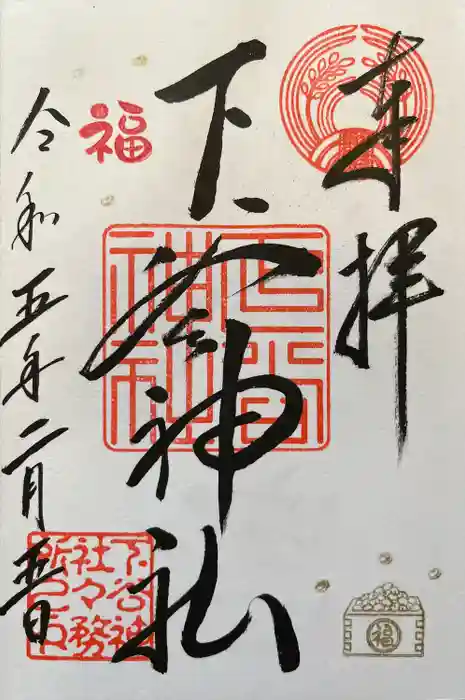 奉拝
下谷神社
令和五年二月
日
福
下谷神
社々務
所之印
下谷
神社
福